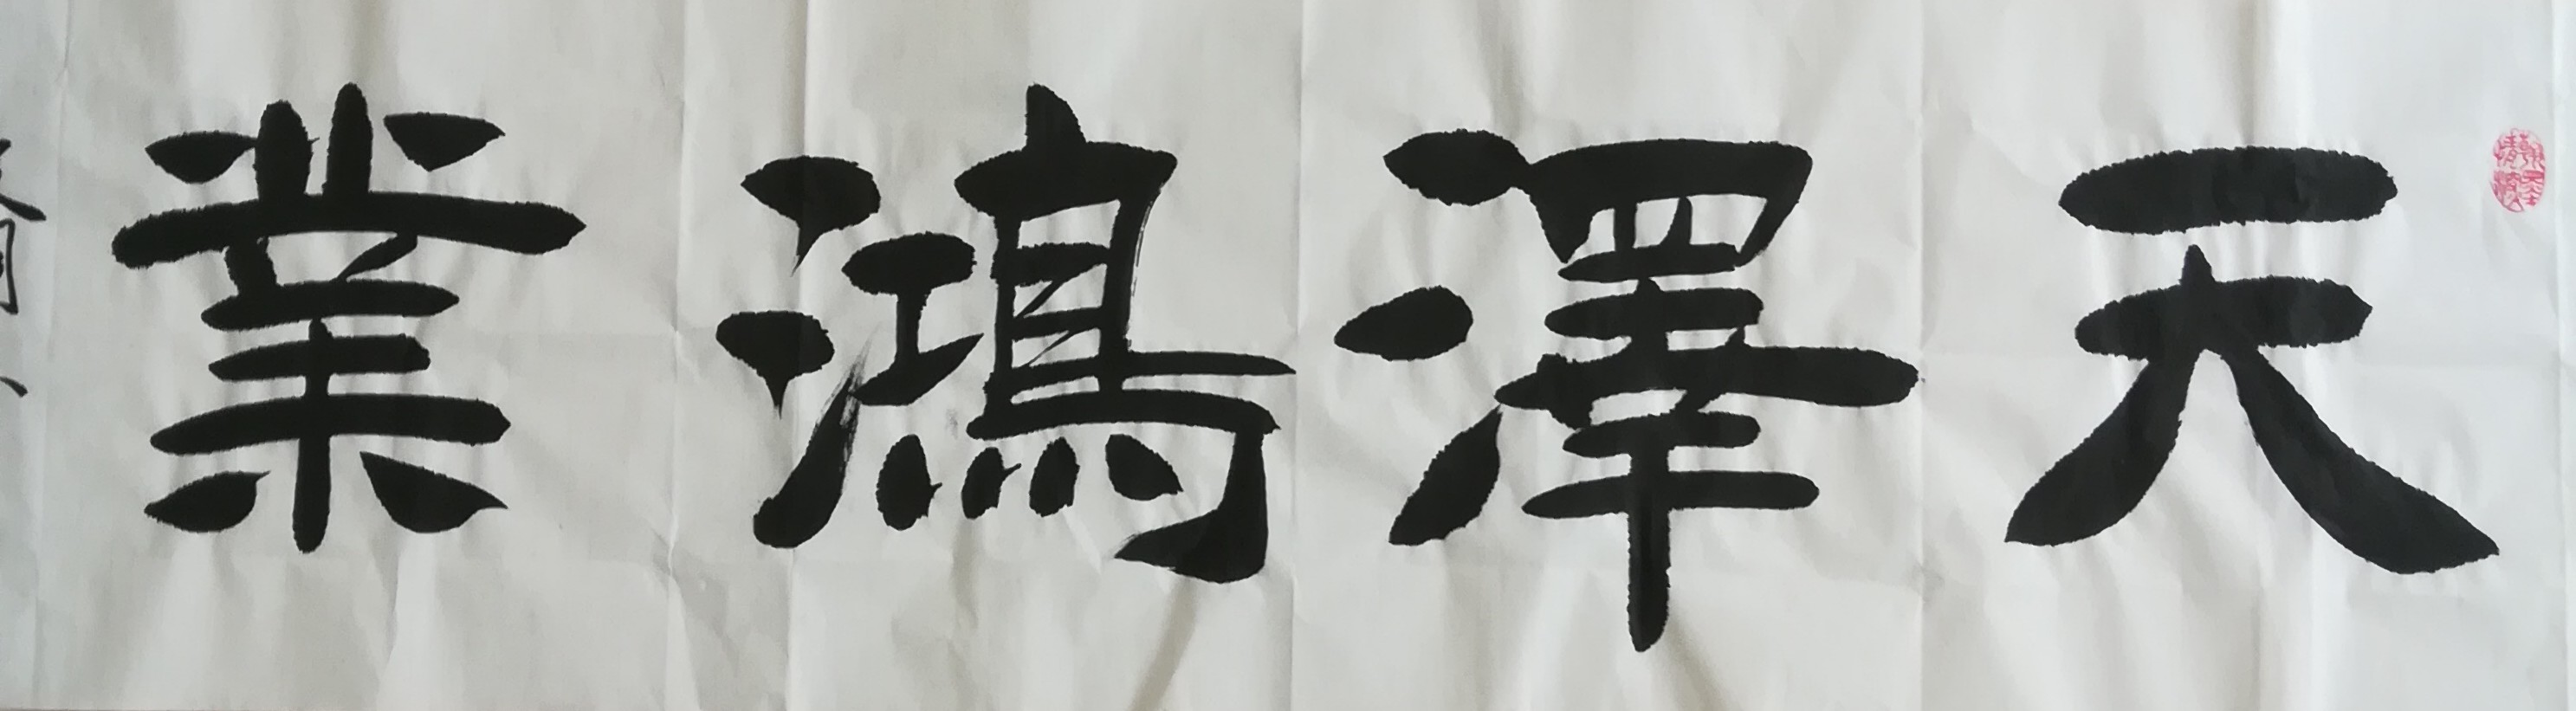 天澤鴻業